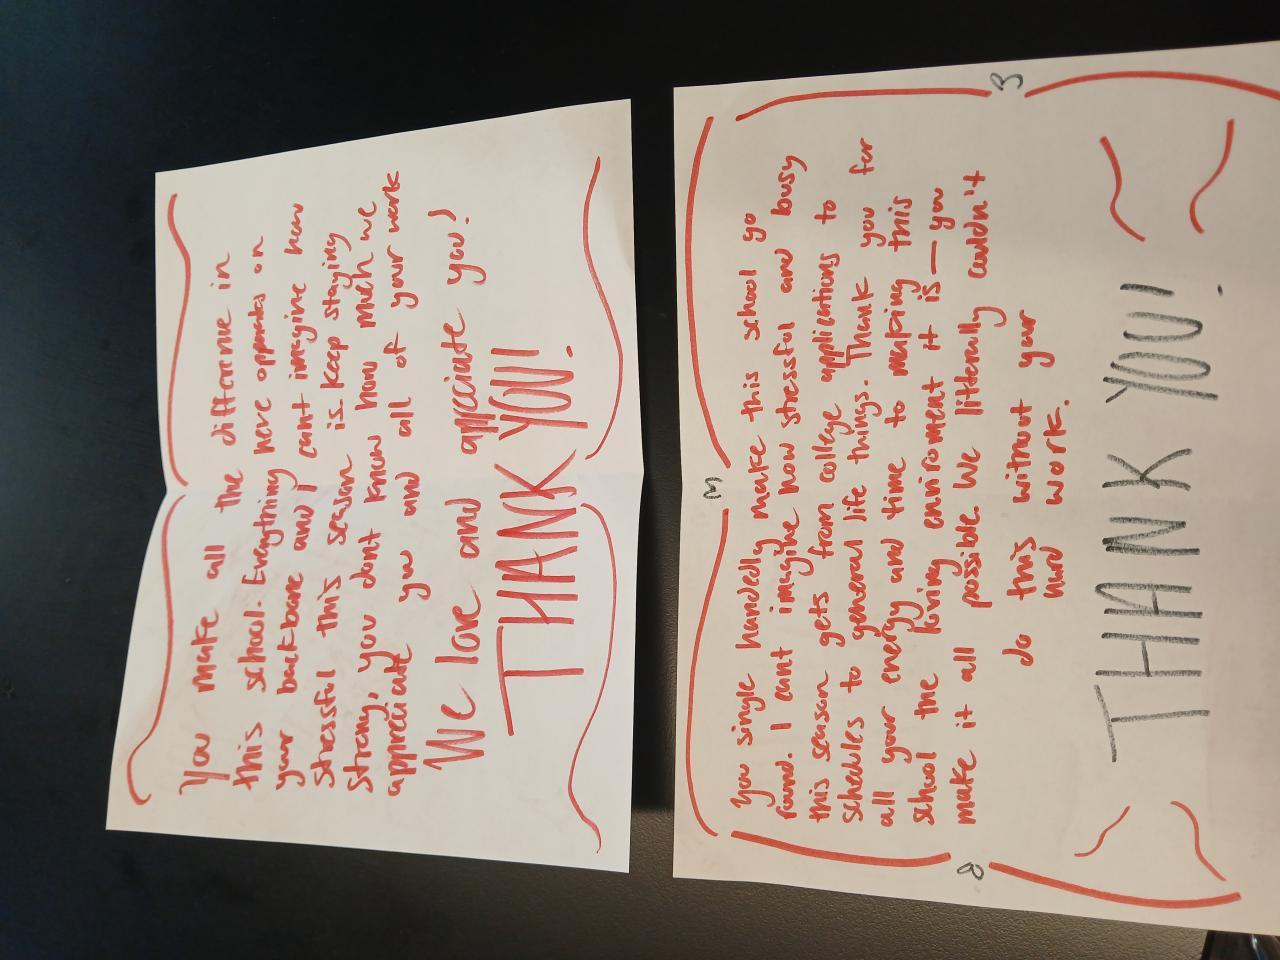 You make all the differne in
this school. Evrything here opperats on
your backbone and I cant imagine how
stressful this season is. Keep staying
strong, you dont know how much we
appreciate you and all of your work
We love and appriciate you!
THANK YOU!
You single handedly make this school go
round. I cant imagine how stressful and busy
this season gets from college applications to
schedules to general life things. Thank you for
all your energy and time to making this
school the loving enviroment it is — you
make it all possible. We litterally couldn't
do this without your
hard work.
THANK YOU!